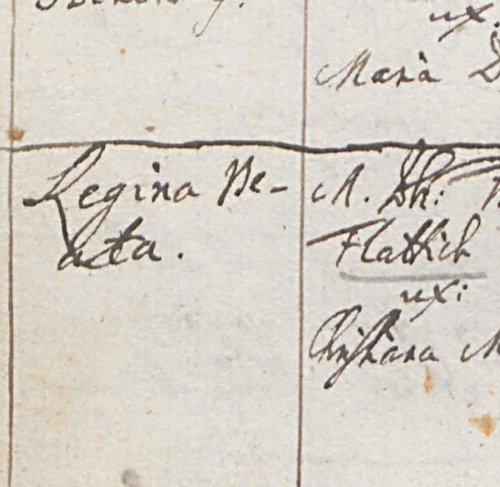 ux.
Maria
Regina Be-
ata.
M. Joh:
Flattich
ux:
Christiana M